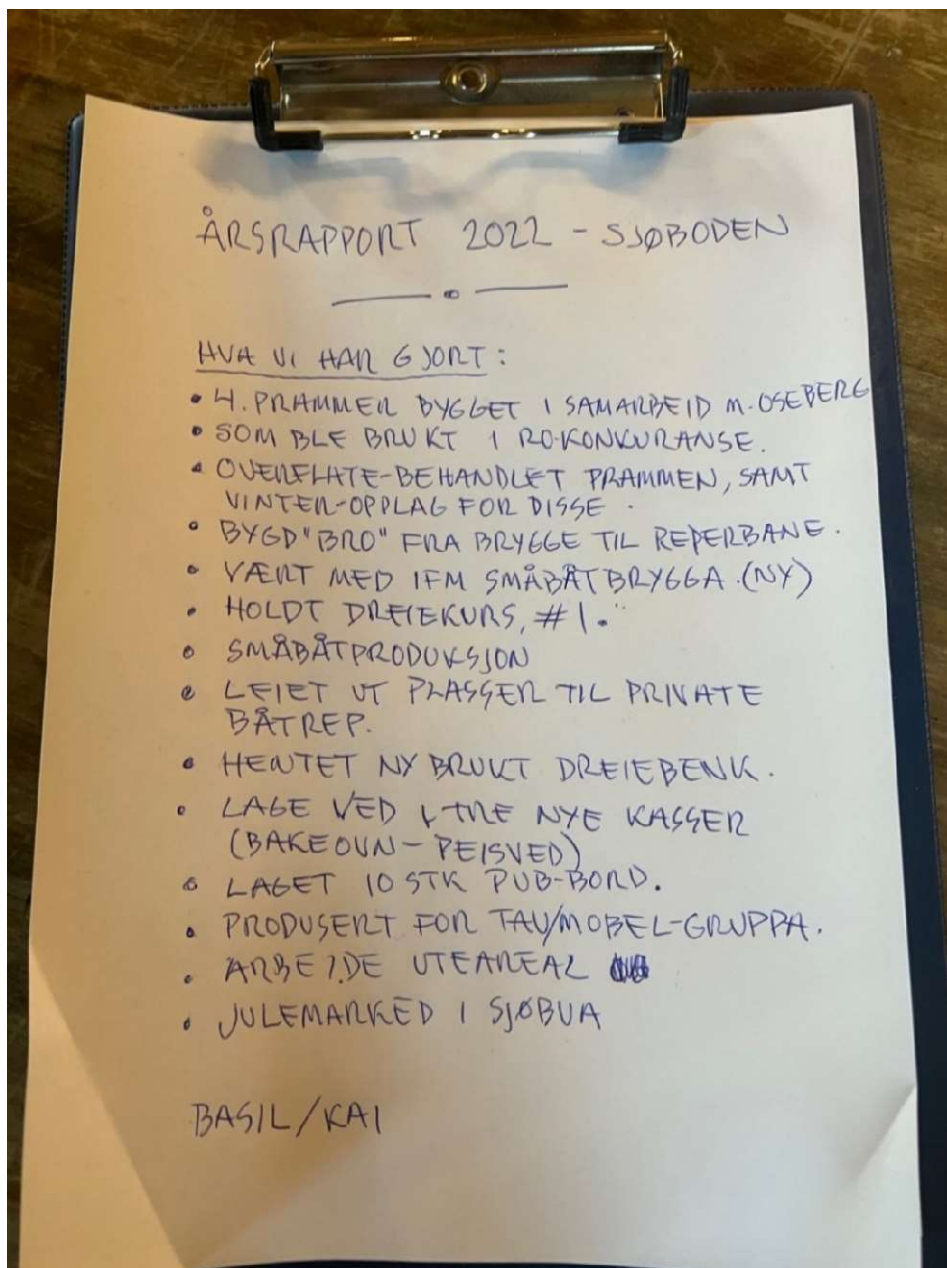 ÅRSRAPPORT 2022 - SJØBODEN
HVA VI HAR GJORT:
• 4. PRAMMER BYGGET I SAMARBEID M. OSEBERG
• SOM BLE BRUKT I RO-KONKURANSE.
• OVERFLATE-BEHANDLET PRAMMEN, SAMT
VINTER-OPPLAG FOR DISSE.
• BYGD "BRO" FRA BRYGGE TIL REPERBANE.
• VÆRT MED IFM SMÅBÅTBRYGGA. (NY)
• HOLDT DREIEKURS, #1.
• SMÅBÅTPRODUKSJON
• LEIET UT PLASSER TIL PRIVATE
BÅTREP.
• HENTET NY BRUKT DREIEBENK.
• LAGE VED I TRE NYE KASSER
(BAKEOVN - PEISVED)
• LAGET 10 STK PUB-BORD.
• PRODUSERT FOR TAU/MOBEL-GRUPPA.
• ARBEIDE UTEAREAL
• JULEMARKED I SJØBUA
BASIL/KAI